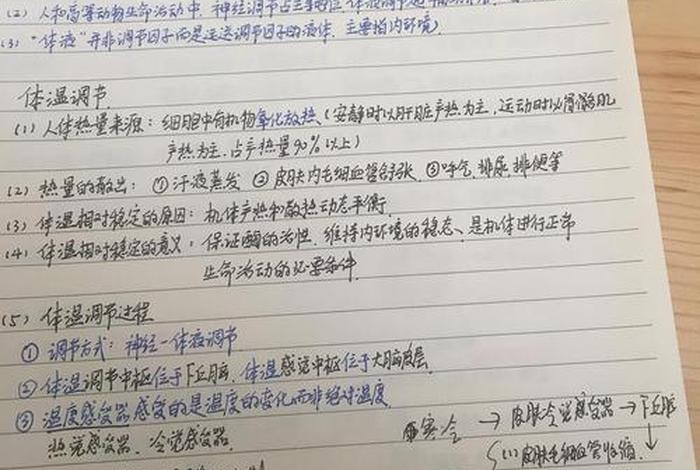 (2) 人和高等动物生命活动中，神经调节占主要地位
(3) "体液"并非调节因子而是运送调节因子的液体，主要指内环境)
体温调节
(1) 人体热量来源：细胞中有机物氧化放热(安静时以肝脏产热为主，运动时以骨骼肌
产热为主，占产热量90%以上)
(2) 热量的散出：①汗液蒸发 ②皮肤内毛细血管舒张 ③呼气，排尿，排便等
(3) 体温相对稳定的原因：机体产热和散热动态平衡
(4) 体温相对稳定的意义：保证酶的活性，维持内环境的稳态、是机体进行正常
生命活动的必要条件
(5) 体温调节过程
① 调节方式：神经—体液调节
② 体温调节中枢位于下丘脑，体温感觉中枢位于大脑皮层
③ 温度感受器感受的是温度的变化而非绝对温度
热觉感受器、冷觉感受器
寒冷 → 皮肤冷觉感受器 → 下丘脑
↓
(1) 皮肤毛细血管收缩